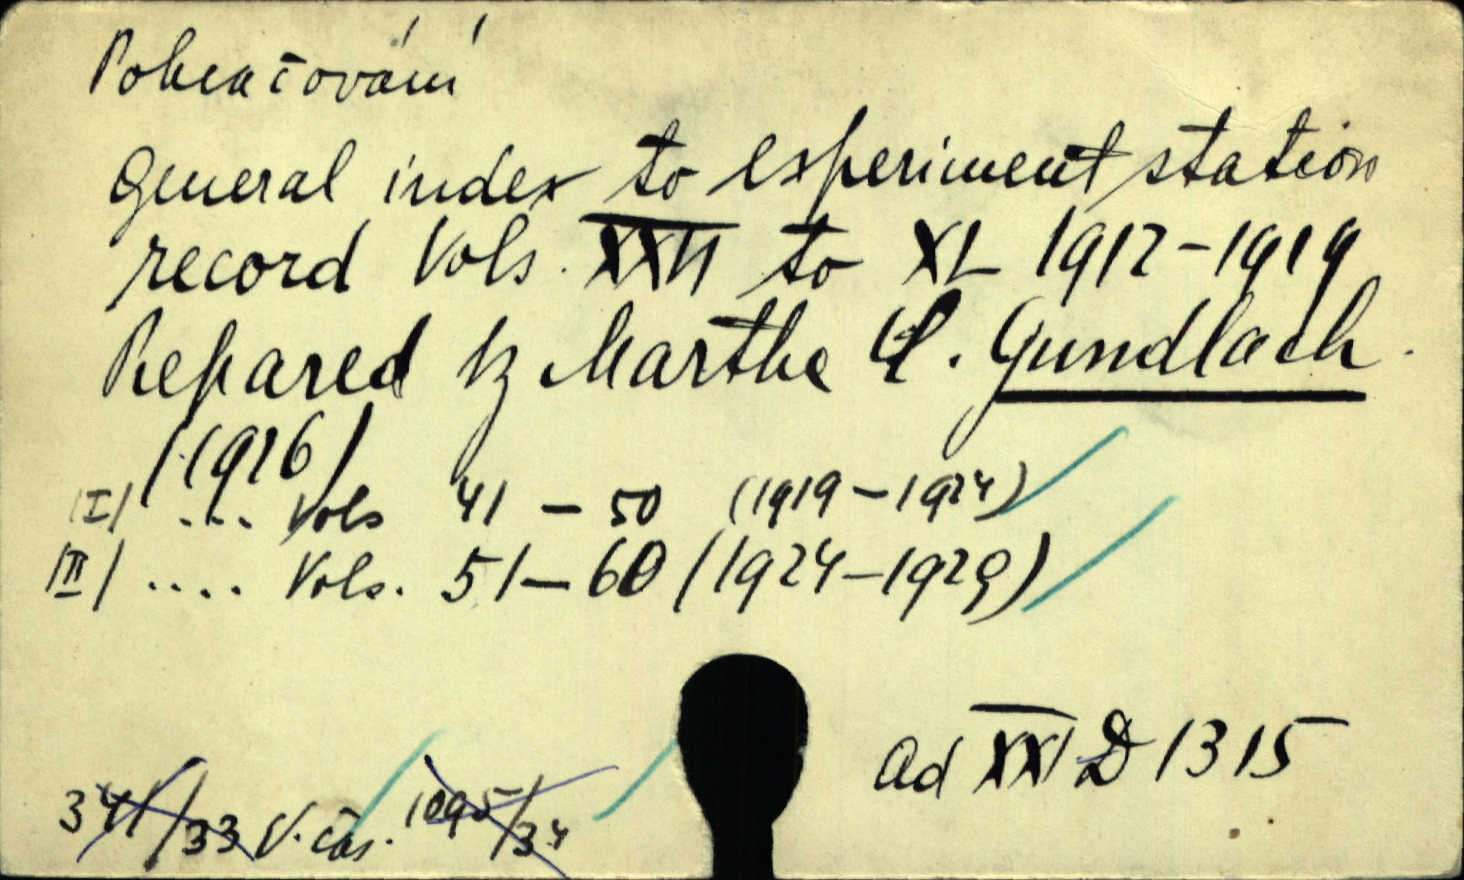 Pokračování
General index to experiment station
record Vols. XXVI to XL 1912-1919
Prepared by Martha C. Gundlach.
(1926)
II/ .... Vols 41 - 50 (1919-1924)
III/ .... Vols. 51-60 (1924-1929)
ad XXI D 1315
341/33 V. čas. 1095/34